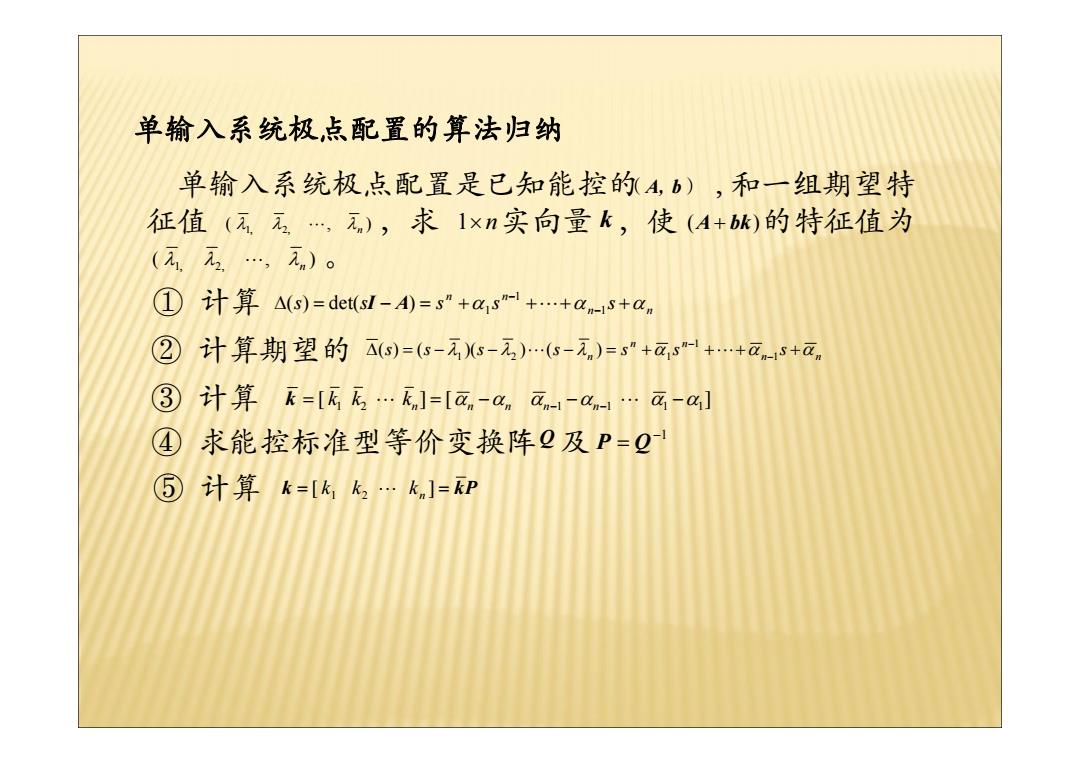 单输入系统极点配置的算法归纳
单输入系统极点配置是已知能控的(A, b),和一组期望特
征值 (λ̄₁, λ̄₂, ⋯, λ̄ₙ),求 1×n实向量 k,使 (A+bk)的特征值为
(λ̄₁, λ̄₂, ⋯, λ̄ₙ)。
① 计算 Δ(s) = det(sI − A) = sⁿ + α₁sⁿ⁻¹ + ⋯ + αₙ₋₁s + αₙ
② 计算期望的 Δ̄(s) = (s − λ̄₁)(s − λ̄₂)⋯(s − λ̄ₙ) = sⁿ + ᾱ₁sⁿ⁻¹ + ⋯ + ᾱₙ₋₁s + ᾱₙ
③ 计算 k̄ = [k̄₁ k̄₂ ⋯ k̄ₙ] = [ᾱₙ − αₙ ᾱₙ₋₁ − αₙ₋₁ ⋯ ᾱ₁ − α₁]
④ 求能控标准型等价变换阵Q及 P = Q⁻¹
⑤ 计算 k = [k₁ k₂ ⋯ kₙ] = k̄P